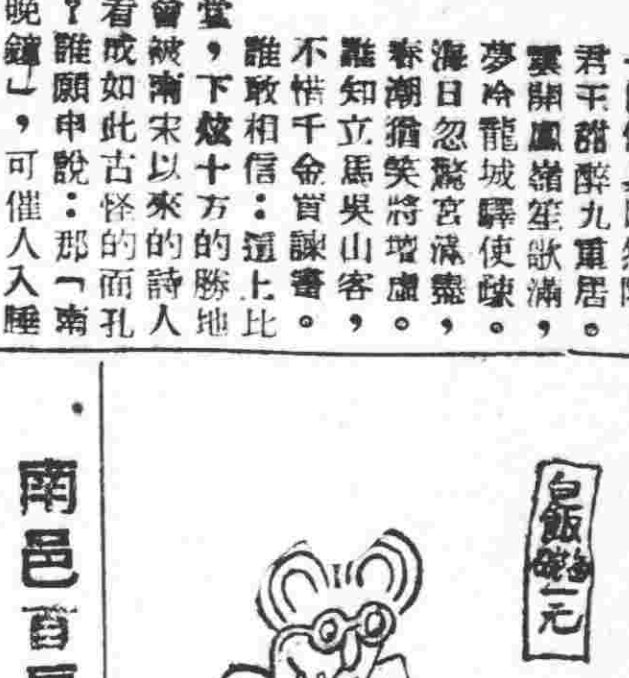 君王甜醉九重居。
雲開鳳嶺笙歌滿，
夢冷龍城驛使疎。
海日忽驚宮漏盡，
春潮猶笑將壇虛。
誰知立馬吳山客，
不惜千金買諫書。
誰敢相信：這上比
堂，下炫十方的勝地
曾被南宋以來的詩人
看成如此古怪的而孔
？誰願申說：那「南
晚鐘」，可催人入睡
白飯每碗一元
南邑百